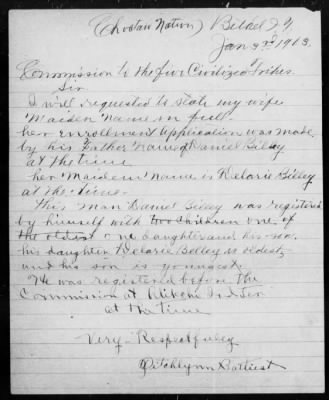 (Choctaw Nation) Bethel I.T.
Jan 3rd 1903.
Commission to the Five Civilized Tribes.
Sir
I will requested to state my wife
Maiden Name on full.
her Enrollment Application was made
by his Father name of Daniel Billey
at the time
her Maiden Name is Delarie Billey
at the time.
This man Daniel Billey was registered
by himself with two children one of
the oldest one daughter and his son.
his daughter Delarie Belley is oldest,
and his son is youngest.
He was registered before the
Commission at Alikchi Ind Ter
at the time
Very Respectfuley
Pitchlynn Battiest